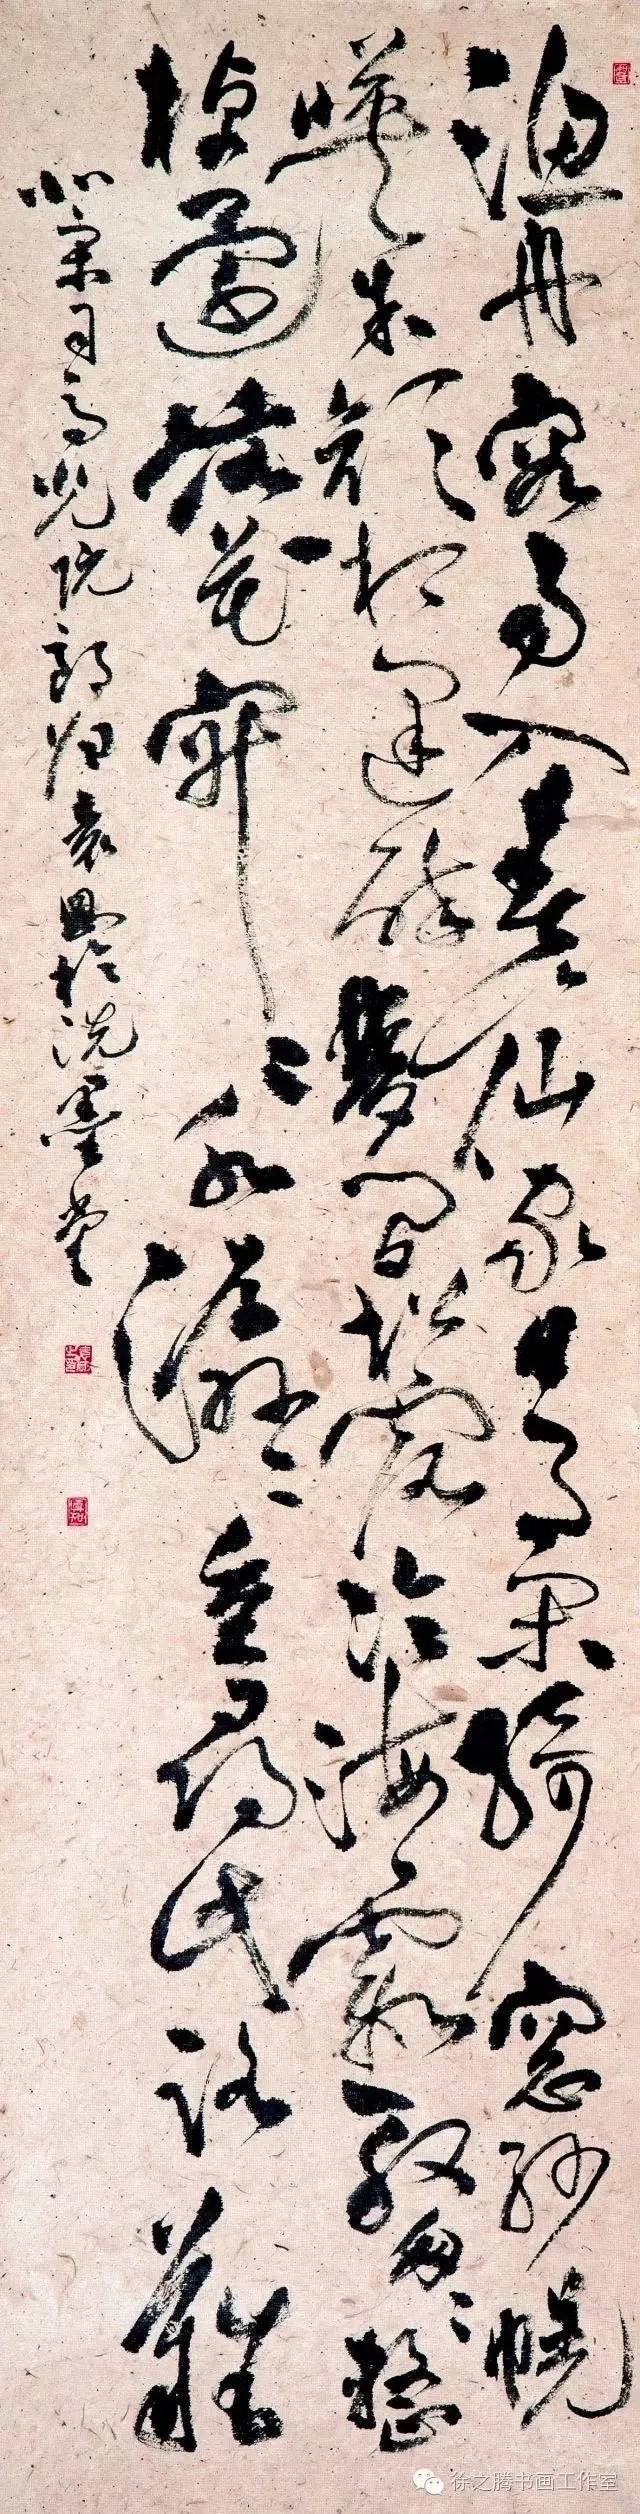 渔舟容易入春山仙家日月闲绮窗纱幌
映朱颜相逢醉梦间松露冷海霜殷匆匆整
棹还落花寂寂水潺潺重寻此路难
北宋司马光阮郎归袁 洗墨堂
徐之腾书画工作室